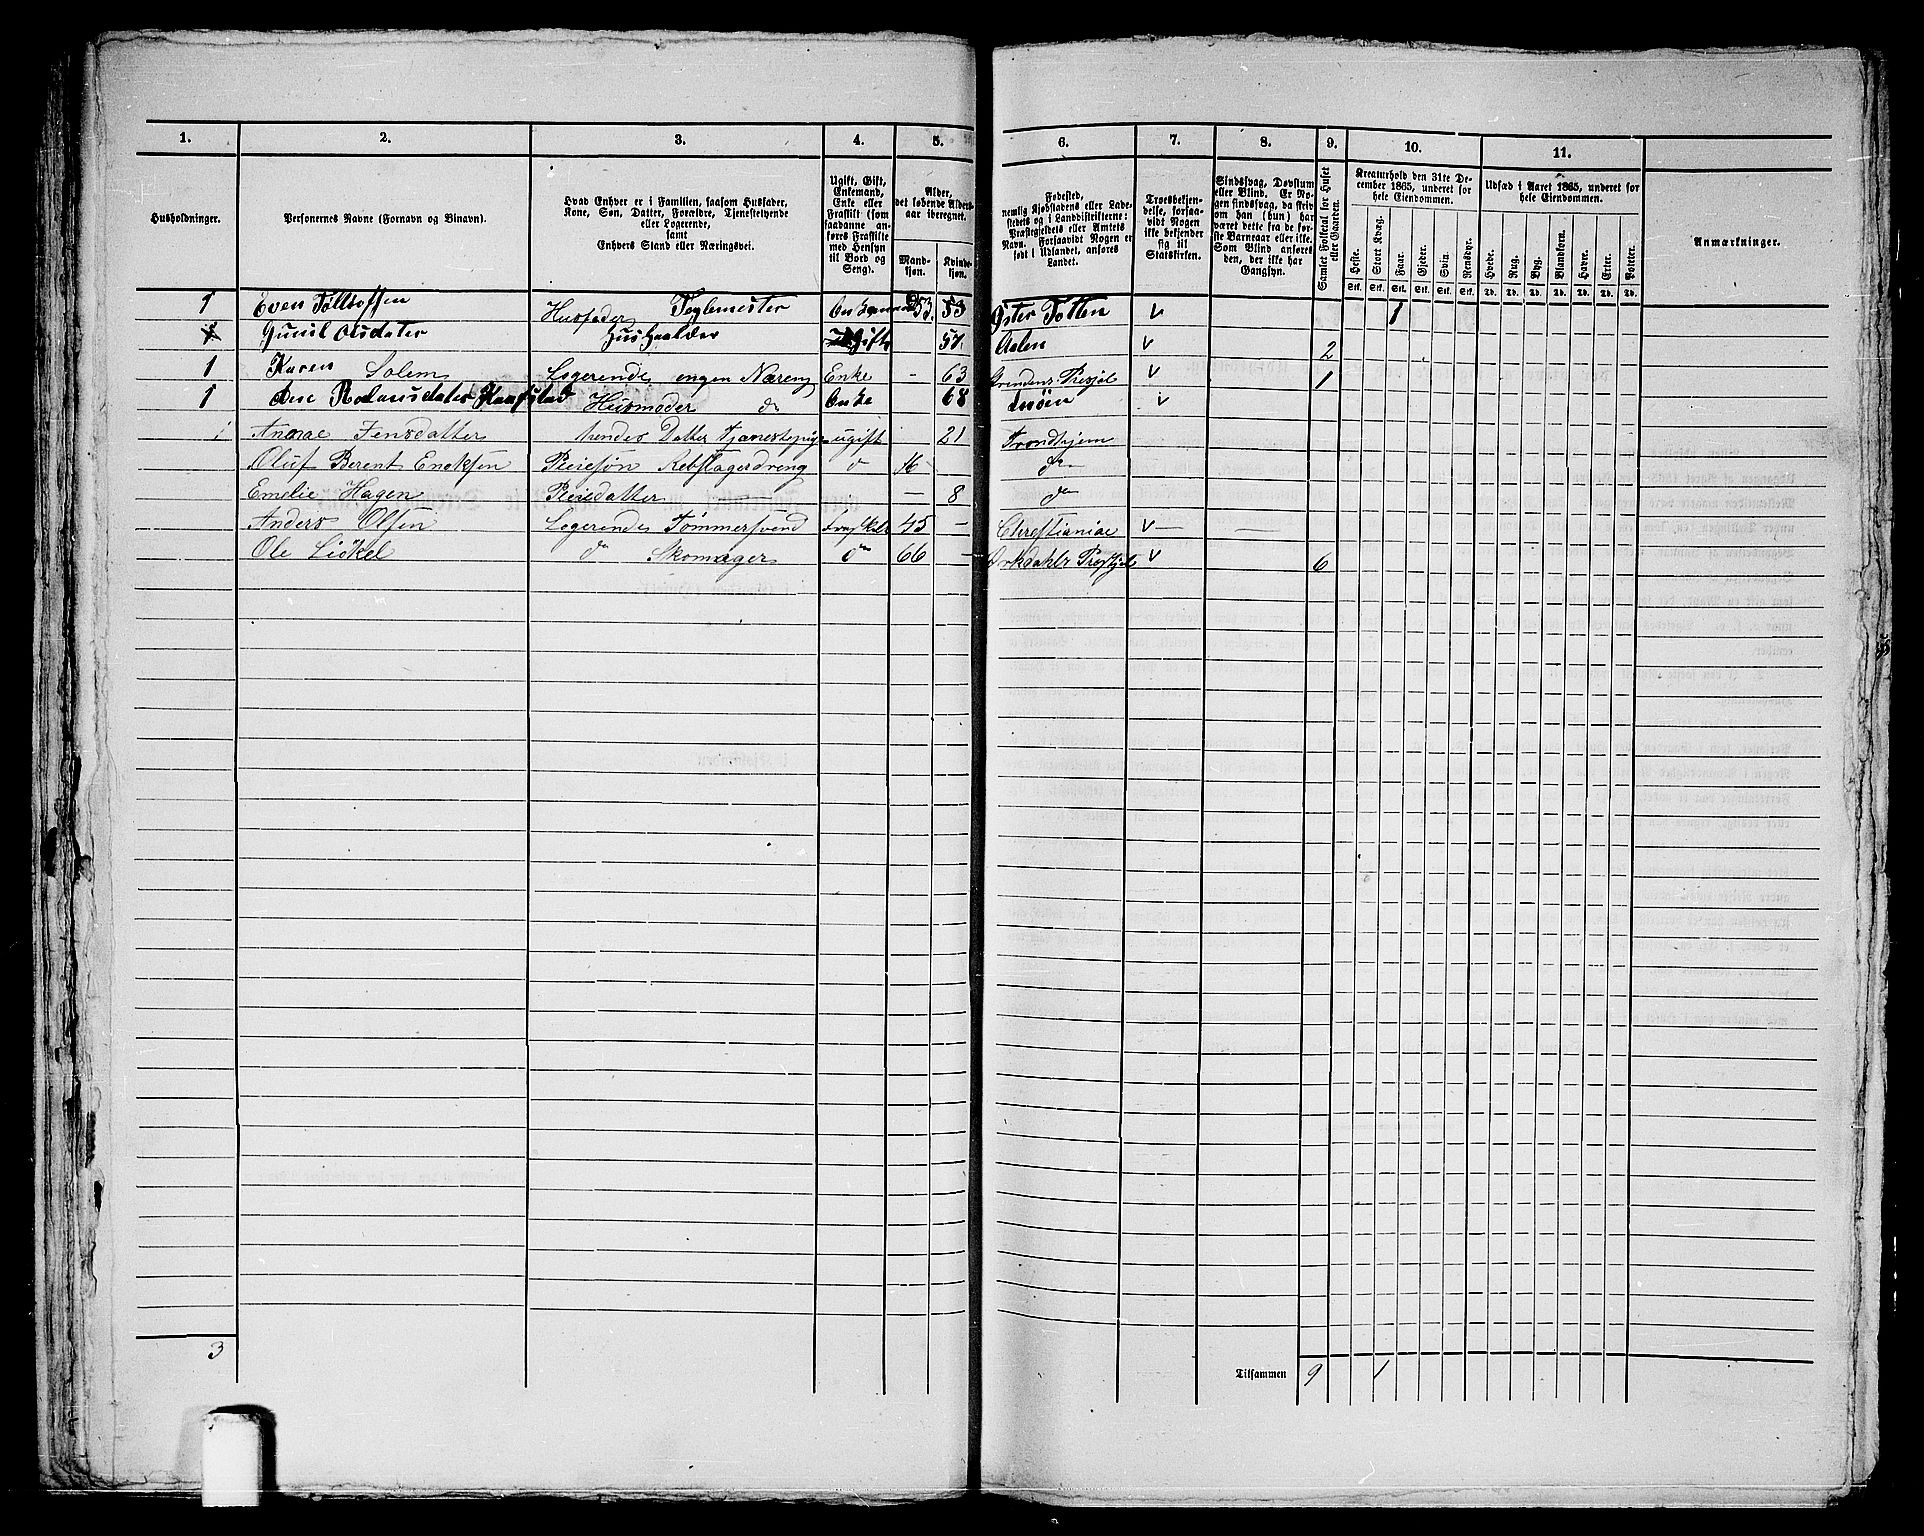 1. 2. 3. 4. 5. 6. 7. 8. 9. 10. 11.
Husholdninger.
Personernes Navne (Fornavn og Binavn).
Hvad Enhver er i Familien, saasom Husfader,
Kone, Søn, Datter, Forældre, Tjenestetyende
eller Logerende,
samt
Enhvers Stand eller Næringsvei.
Ugift, Gift,
Enkemand,
Enke eller
Fraskilt (som
saadanne an-
føres Fraskilte
med Hensyn
til Bord og
Seng).
Alder,
det løbende Alders-
aar iberegnet.
Mand-
kjøn.
Kvinde-
kjøn.
Fødested,
nemlig Kjøbstadens eller Lade-
stedets og i Landdistrikterne:
Præstegjeldets eller Amtets
Navn. Forsaavidt Nogen er
født i Udlandet, anføres
Landet.
Troesbekjen-
delse, forsaa-
vidt Nogen
ikke bekjender
sig til
Statskirken.
Sindssvag, Døvstum
eller Blind. Er No-
gen sindssvag, da skriv
om han (hun) har
været dette fra de før-
ste Barneaar eller ikke.
Som Blind anføres
den, der ikke har
Gangsyn.
Samlet Folketal for Huset
eller Gaarden.
Kreaturhold den 31te De-
cember 1865, underet for
hele Eiendommen.
Heste. Stort Kvæg. Faar. Gjeder. Sviin. Rensdyr.
Stk. Stk. Stk. Stk. Stk. Stk.
Udsæd i Aaret 1865, underet for
hele Eiendommen.
Hvede. Rug. Byg. Blandkorn. Havre. Erter. Poteter.
Td. Td. Td. Td. Td. Td. Td.
Anmærkninger.
1 Even Tølløfsen Husfader Teglemester Enkemand 53. 53 Øster Totten v 1
Gunil Olsdater Hushaalder Ugift 57. Aalen v 2
1 Karen Solem Logerende engen Næreng Enke - 63 Præstgjel v 1
1 Ane Husmoder do Enke 68 v
1 Jensdatter hendes Datter Tjenestepige ugift 21 Trondhjem
Oluf Berent Ericksen Pleiesøn Rebslagerdreng do 16 - do
Emelie Hagen Pleiedatter — 8 do
Anders Olsen Logerende Tømmersvend 45 — Christiania v — —
Ole Lickel do Skomager do 66 — Orkdahls Præstgjel v 6
3 Tilsammen 9 1